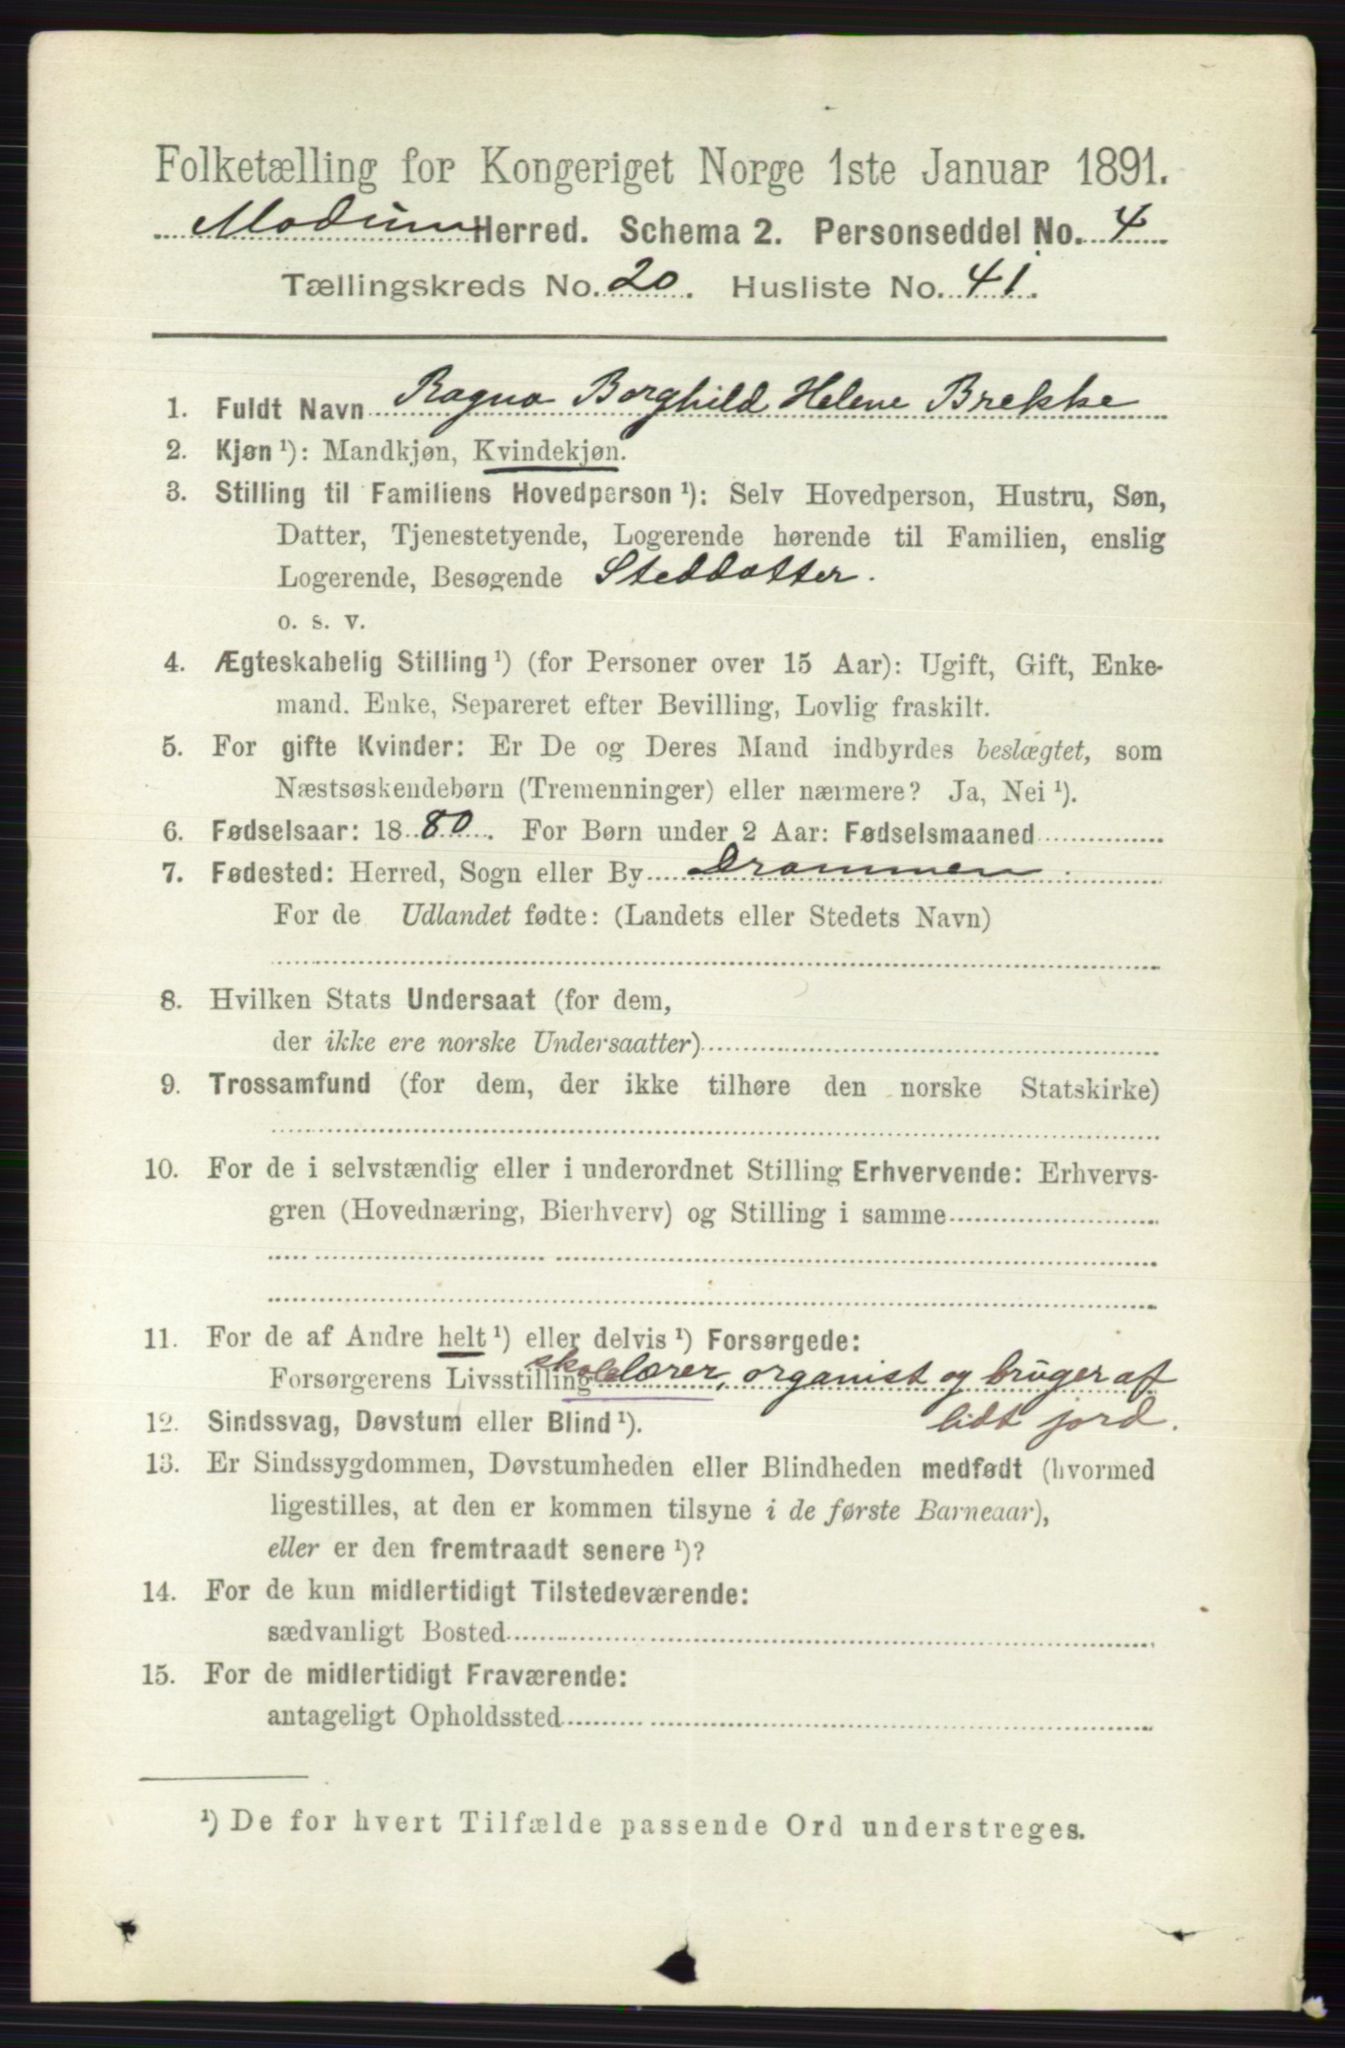 Folketælling for Kongeriget Norge 1ste Januar 1891.
Modum Herred. Schema 2. Personseddel No. 4
Tællingskreds No. 20. Husliste No. 41.
1. Fuldt Navn Ragna Borghild Helene Brekke
2. Kjøn ¹): Mandkjøn, Kvindekjøn.
3. Stilling til Familiens Hovedperson ¹): Selv Hovedperson, Hustru, Søn,
Datter, Tjenestetyende, Logerende hørende til Familien, enslig
Logerende, Besøgende Steddatter.
o. s. v.
4. Ægteskabelig Stilling ¹) (for Personer over 15 Aar): Ugift, Gift, Enke-
mand. Enke, Separeret efter Bevilling, Lovlig fraskilt.
5. For gifte Kvinder: Er De og Deres Mand indbyrdes beslægtet, som
Næstsøskendebørn (Tremenninger) eller nærmere? Ja, Nei ¹).
6. Fødselsaar: 1880. For Børn under 2 Aar: Fødselsmaaned
7. Fødested: Herred, Sogn eller By Drammen
For de Udlandet fødte: (Landets eller Stedets Navn)
8. Hvilken Stats Undersaat (for dem,
der ikke ere norske Undersaatter)
9. Trossamfund (for dem, der ikke tilhøre den norske Statskirke)
10. For de i selvstændig eller i underordnet Stilling Erhvervende: Erhvervs-
gren (Hovednæring, Bierhverv) og Stilling i samme
11. For de af Andre helt ¹) eller delvis ¹) Forsørgede:
Forsørgerens Livsstilling skolelærer, organist og bruger af
lidt jord.
12. Sindssvag, Døvstum eller Blind ¹).
13. Er Sindssygdommen, Døvstumheden eller Blindheden medfødt (hvormed
ligestilles, at den er kommen tilsyne i de første Barneaar),
eller er den fremtraadt senere ¹)?
14. For de kun midlertidigt Tilstedeværende:
sædvanligt Bosted
15. For de midlertidigt Fraværende:
antageligt Opholdssted
¹) De for hvert Tilfælde passende Ord understreges.